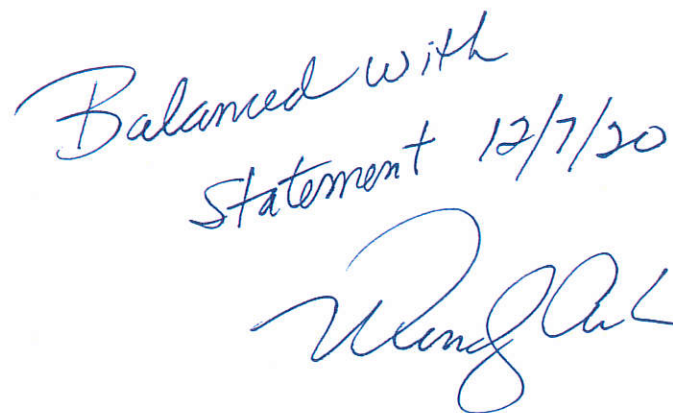 Balanced with
Statement 12/7/20